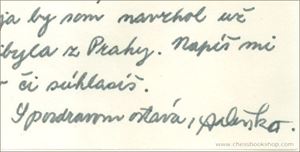 ja by som navrhol už
byla z Prahy. Napíš mi
či súhlasíš.
S pozdravom ostáva,
© www.chessbookshop.com